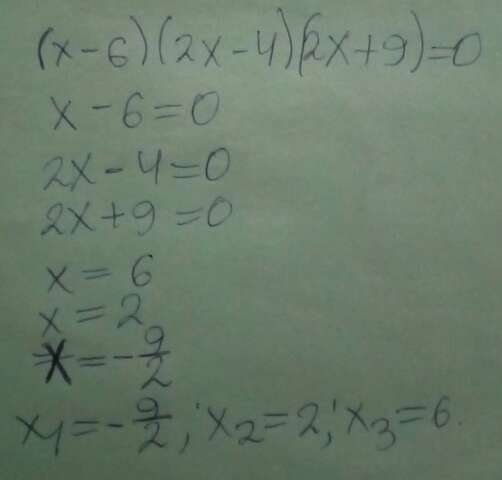 (x-6)(2x-4)(2x+9)=0
x-6=0
2x-4=0
2x+9=0
x=6
x=2
x=-9/2
x₁=-9/2; x₂=2; x₃=6.